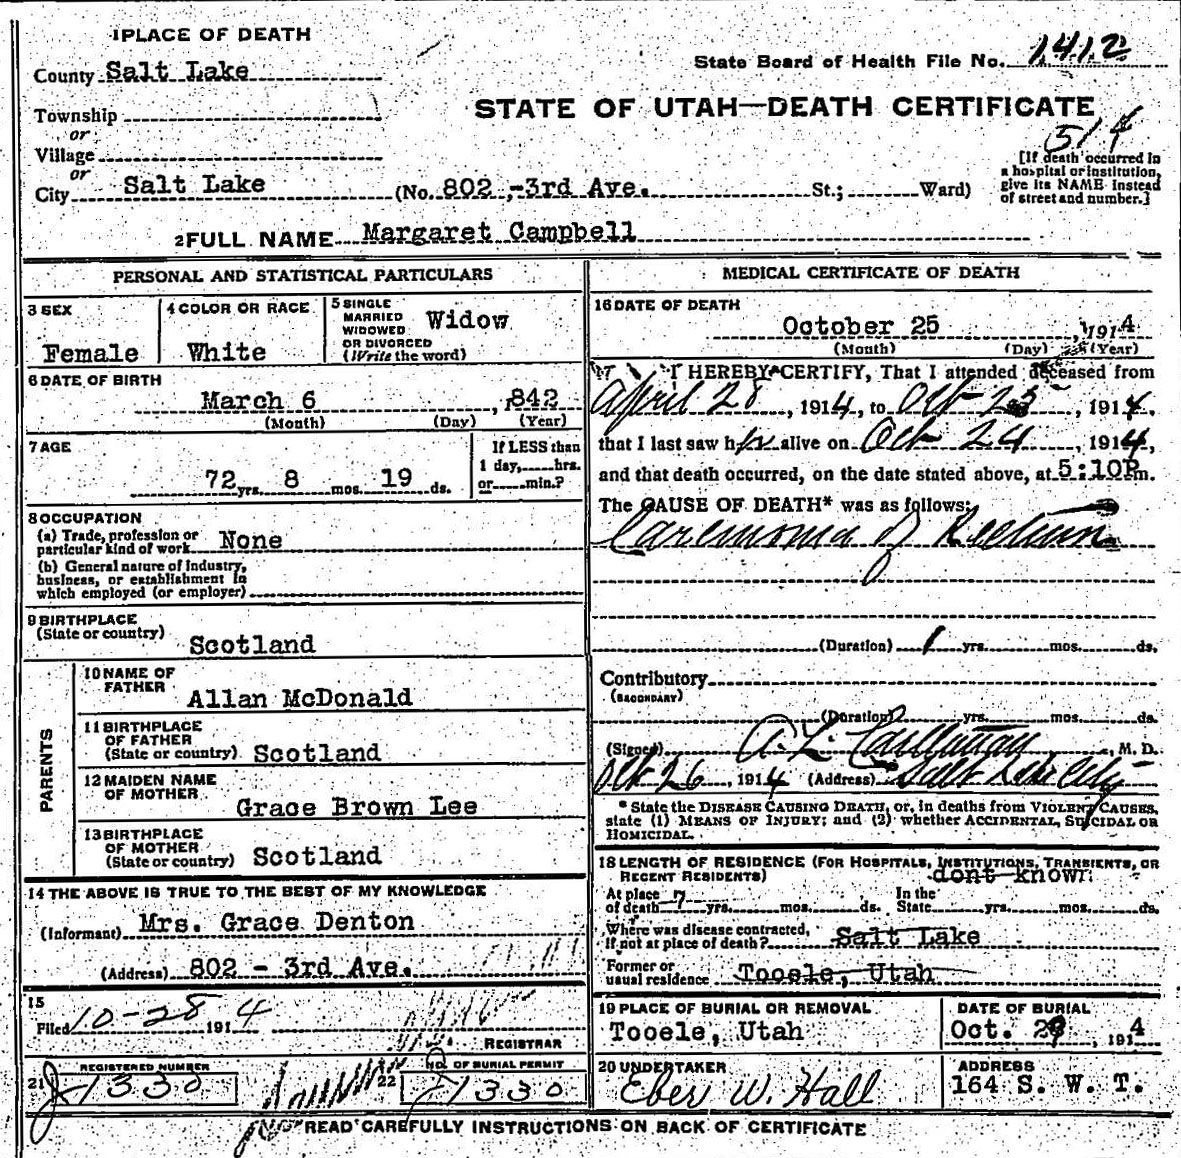 1 PLACE OF DEATH
County Salt Lake
State Board of Health File No. 1412
STATE OF UTAH—DEATH CERTIFICATE
514
Township
or
Village
or
City Salt Lake (No. 802 -3rd Ave. St.; Ward)
[If death occurred in
a hospital or institution,
give its NAME instead
of street and number.]
2 FULL NAME Margaret Campbell
PERSONAL AND STATISTICAL PARTICULARS
3 SEX
Female
4 COLOR OR RACE
White
5 SINGLE
MARRIED
WIDOWED
OR DIVORCED
(Write the word)
Widow
6 DATE OF BIRTH
March 6, 1842
(Month) (Day) (Year)
7 AGE
72 yrs. 8 mos. 19 ds.
If LESS than
1 day, hrs.
or min.?
8 OCCUPATION
(a) Trade, profession or
particular kind of work None
(b) General nature of industry,
business, or establishment in
which employed (or employer)
9 BIRTHPLACE
(State or country)
Scotland
PARENTS
10 NAME OF
FATHER
Allan McDonald
11 BIRTHPLACE
OF FATHER
(State or country) Scotland
12 MAIDEN NAME
OF MOTHER
Grace Brown Lee
13 BIRTHPLACE
OF MOTHER
(State or country) Scotland
14 THE ABOVE IS TRUE TO THE BEST OF MY KNOWLEDGE
(Informant) Mrs. Grace Denton
(Address) 802 - 3rd Ave.
15
Filed 10-28 1914
REGISTRAR
21 REGISTERED NUMBER
J 1330
22 NO. OF BURIAL PERMIT
J 1330
MEDICAL CERTIFICATE OF DEATH
16 DATE OF DEATH
October 25, 1914
(Month) (Day) (Year)
17 I HEREBY CERTIFY, That I attended deceased from
April 28, 1914, to Oct 25, 1914,
that I last saw her alive on Oct 24, 1914,
and that death occurred, on the date stated above, at 5:10P m.
The CAUSE OF DEATH* was as follows:
Carcinoma of Rectum
(Duration) 1 yrs. mos. ds.
Contributory
(SECONDARY)
(Duration) yrs. mos. ds.
(Signed) A. L. , M. D.
Oct 26, 1914 (Address) Salt Lake City
* State the DISEASE CAUSING DEATH, or, in deaths from VIOLENT CAUSES,
state (1) MEANS OF INJURY; and (2) whether ACCIDENTAL, SUICIDAL OR
HOMICIDAL.
18 LENGTH OF RESIDENCE (FOR HOSPITALS, INSTITUTIONS, TRANSIENTS, OR
RECENT RESIDENTS) dont known
At place
of death 7 yrs. mos. ds.
In the
State yrs. mos. ds.
Where was disease contracted,
if not at place of death? Salt Lake
Former or
usual residence Tooele, Utah
19 PLACE OF BURIAL OR REMOVAL
Tooele, Utah
DATE OF BURIAL
Oct. 29, 1914
20 UNDERTAKER
Eber W. Hall
ADDRESS
164 S. W. T.
READ CAREFULLY INSTRUCTIONS ON BACK OF CERTIFICATE